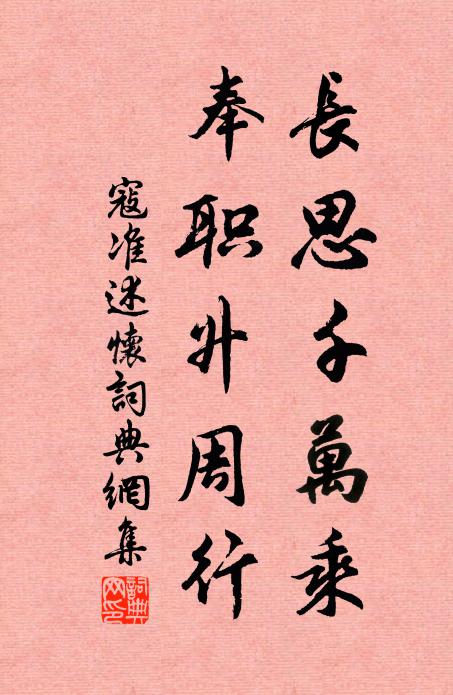 長思千萬乘
奉职升周行
寇准述懷詞典網集
詞典網印